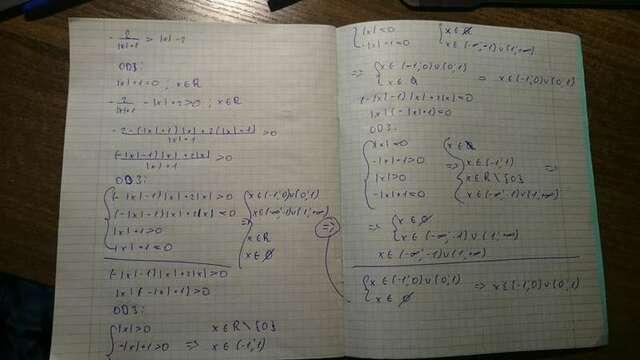 - 2/(|x|+1) > |x| - 2
ОДЗ:
|x|+1=0 ; x∈R
- 2/(|x|+1) - |x|+2>0 ; x∈R
(-2-(|x|+1)|x|+2(|x|+1))/(|x|+1) >0
((-|x|-1)|x|+2|x|)/(|x|+1) >0
ОДЗ:
(-|x|-1)|x|+2|x|>0
(-|x|-1)|x|+2|x|<0
|x|+1>0
|x|+1=0
⇒ x∈(-1;0)∪(0;1)
x∈(-∞;-1)∪(1;+∞)
x∈R
x∈∅
⇒
(-|x|-1)|x|+2|x|>0
|x|(-|x|+1)>0
ОДЗ:
|x|>0 x∈R\{0}
-|x|+1>0 ⇒ x∈(-1;1)
|x|<0 x∈∅
-|x|+1=0 x∈(-∞;-1)∪(1;+∞)
⇒ x∈(-1;0)∪(0;1)
x∈∅ ⇒ x∈(-1;0)∪(0;1)
(-|x|-1)|x|+2|x|=0
|x|(-|x|+1)=0
ОДЗ:
|x|=0
-|x|+1>0 ⇒ x∈(-1;1) ⇒
|x|>0 x∈R\{0}
-|x|+1=0 x∈(-∞;-1)∪(1;+∞)
⇒ x∈∅
x∈(-∞;-1)∪(1;+∞)
x∈(-∞;-1)∪(1;+∞)
x∈(-1;0)∪(0;1) ⇒ x∈(-1;0)∪(0;1)
x∈∅